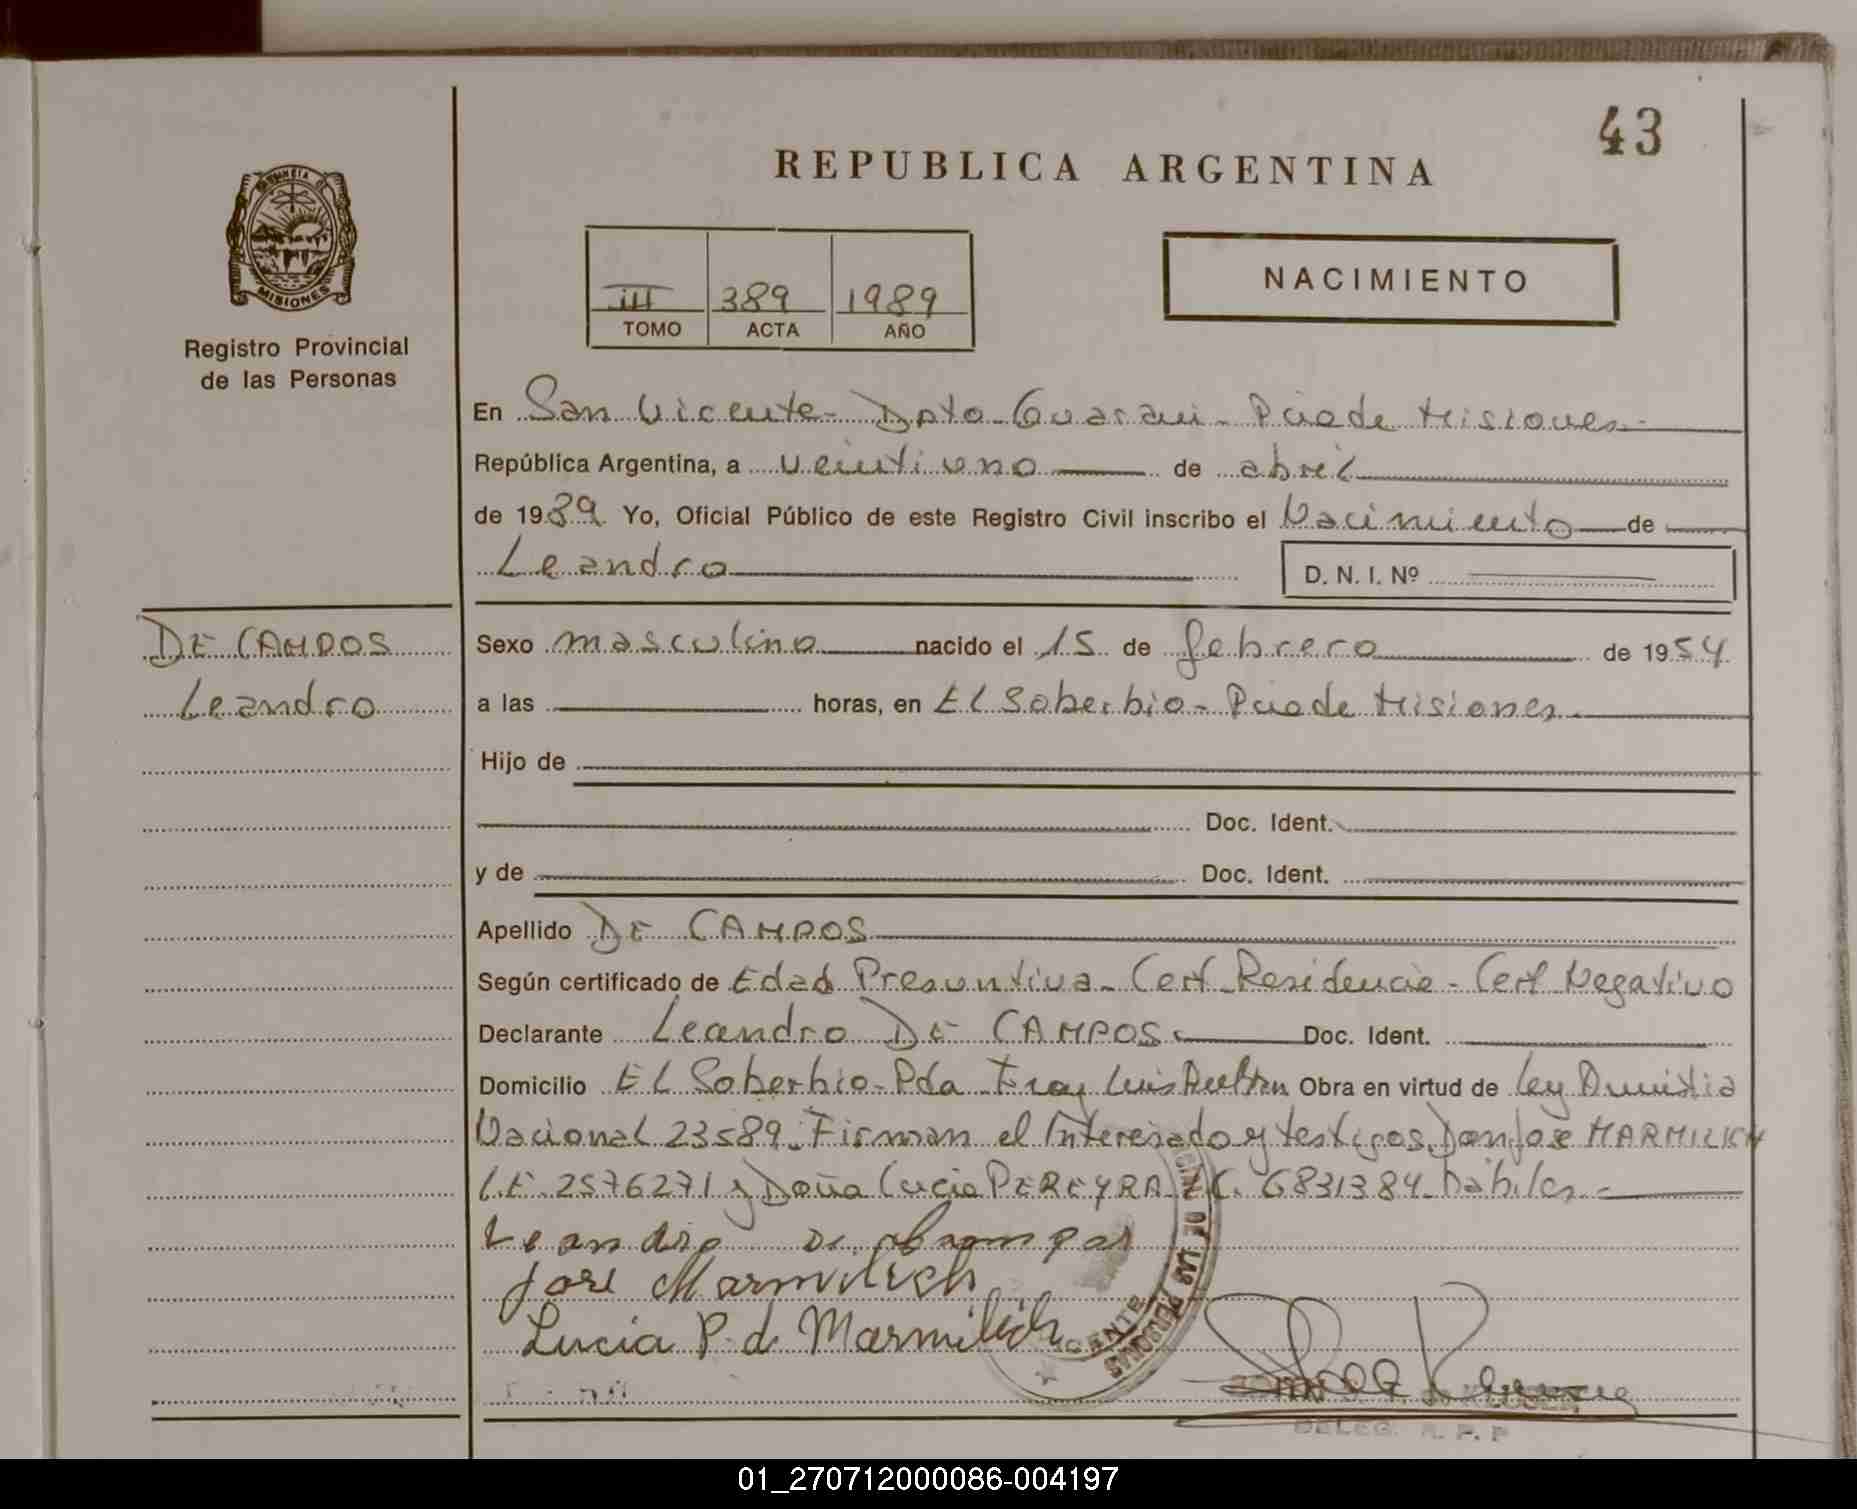 43
REPUBLICA ARGENTINA
PROVINCIA DE
MISIONES
Registro Provincial
de las Personas
III 389 1989
TOMO ACTA AÑO
NACIMIENTO
En San Vicente - Dpto Guarani - Pcia de Misiones -
República Argentina, a veintiuno de abril
de 1989 Yo, Oficial Público de este Registro Civil inscribo el Nacimiento de
Leandro
D. N. I. Nº
DE CAMPOS
Leandro
Sexo masculino nacido el 15 de febrero de 1954
a las horas, en EL Soberbio - Pcia de Misiones.
Hijo de
Doc. Ident.
y de Doc. Ident.
Apellido DE CAMPOS
Según certificado de Edad Presuntiva - Cert Residencia - Cert Negativo
Declarante Leandro DE CAMPOS Doc. Ident.
Domicilio EL Soberbio - Pda Fray Luis Beltran Obra en virtud de Ley Amnistia
Nacional 23589. Firman el Interesado y testigos Don Jose MARMILICH
L.E. 2576271 y Doña Lucia PEREYRA L.C. 6831384 Habiles -
Leandro de Campos
José Marmilich
Lucia P. d. Marmilich
DE LAS PERSONAS
CENTE
DELEG. R. P. P
01_270712000086-004197